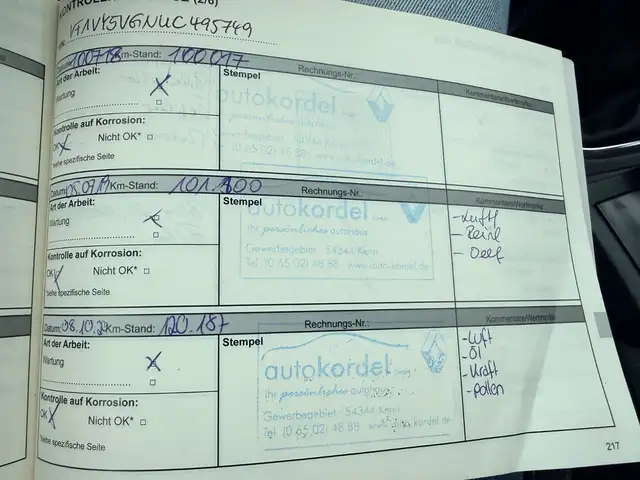 VF1VY5VGNUC495749
Datum: 100718 Km-Stand: 100017
Art der Arbeit:
Wartung
Kontrolle auf Korrosion:
OK Nicht OK* □
*siehe spezifische Seite
Stempel
Rechnungs-Nr.:
autokordel
Gewerbegebiet
(0 65 02) 48 88 www.auto-kordel.de
Kommentare/Wertmarke
Datum: 05.07.19 Km-Stand: 101.300
Art der Arbeit:
Wartung
Kontrolle auf Korrosion:
OK Nicht OK* □
*siehe spezifische Seite
Stempel
Rechnungs-Nr.:
autokordel
Ihr persönliches autohaus
Gewerbegebiet · 54344 Kenn
Tel. (0 65 02) 48 88 · www.auto-kordel.de
Kommentare/Wertmarke
Datum: 08.10.2 Km-Stand: 120.187
Art der Arbeit:
Wartung
Kontrolle auf Korrosion:
OK Nicht OK* □
*siehe spezifische Seite
Stempel
Rechnungs-Nr.:
autokordel
Ihr persönliches autohaus
Gewerbegebiet · 54344 Kenn
Tel. (0 65 02) 48 88 www.auto-kordel.de
Kommentare/Wertmarke
- Luft
- Öl
- Kraft
- Pollen
217